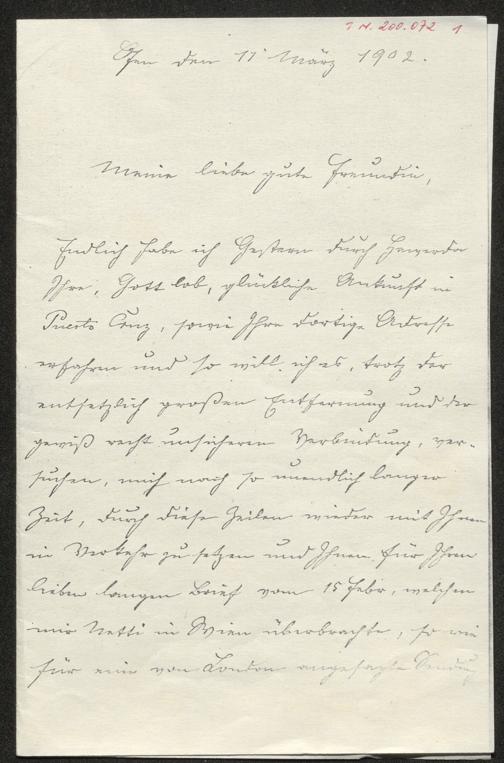 I. N. 200.072 1
Ofen den 11 März 1902.
Meine liebe gute Freundin,
Endlich habe ich Gestern durch Hawerda
Ihre, Gott lob, glückliche Ankunft in
Puerto Cruz, sowie Ihre dortige Adresse
erfahren und so will ich es, trotz der
entsetzlich großen Entfernung und der
gewiß recht unsicheren Verbindung, ver-
suchen, mich nach so unendlich langer
Zeit, durch diese Zeilen wieder mit Ihnen
in Verkehr zu setzen und Ihnen für Ihren
lieben langen Brief vom 15 Febr, welchen
mir Netti in Wien überbrachte, so wie
für eine von London angesagte Sendung